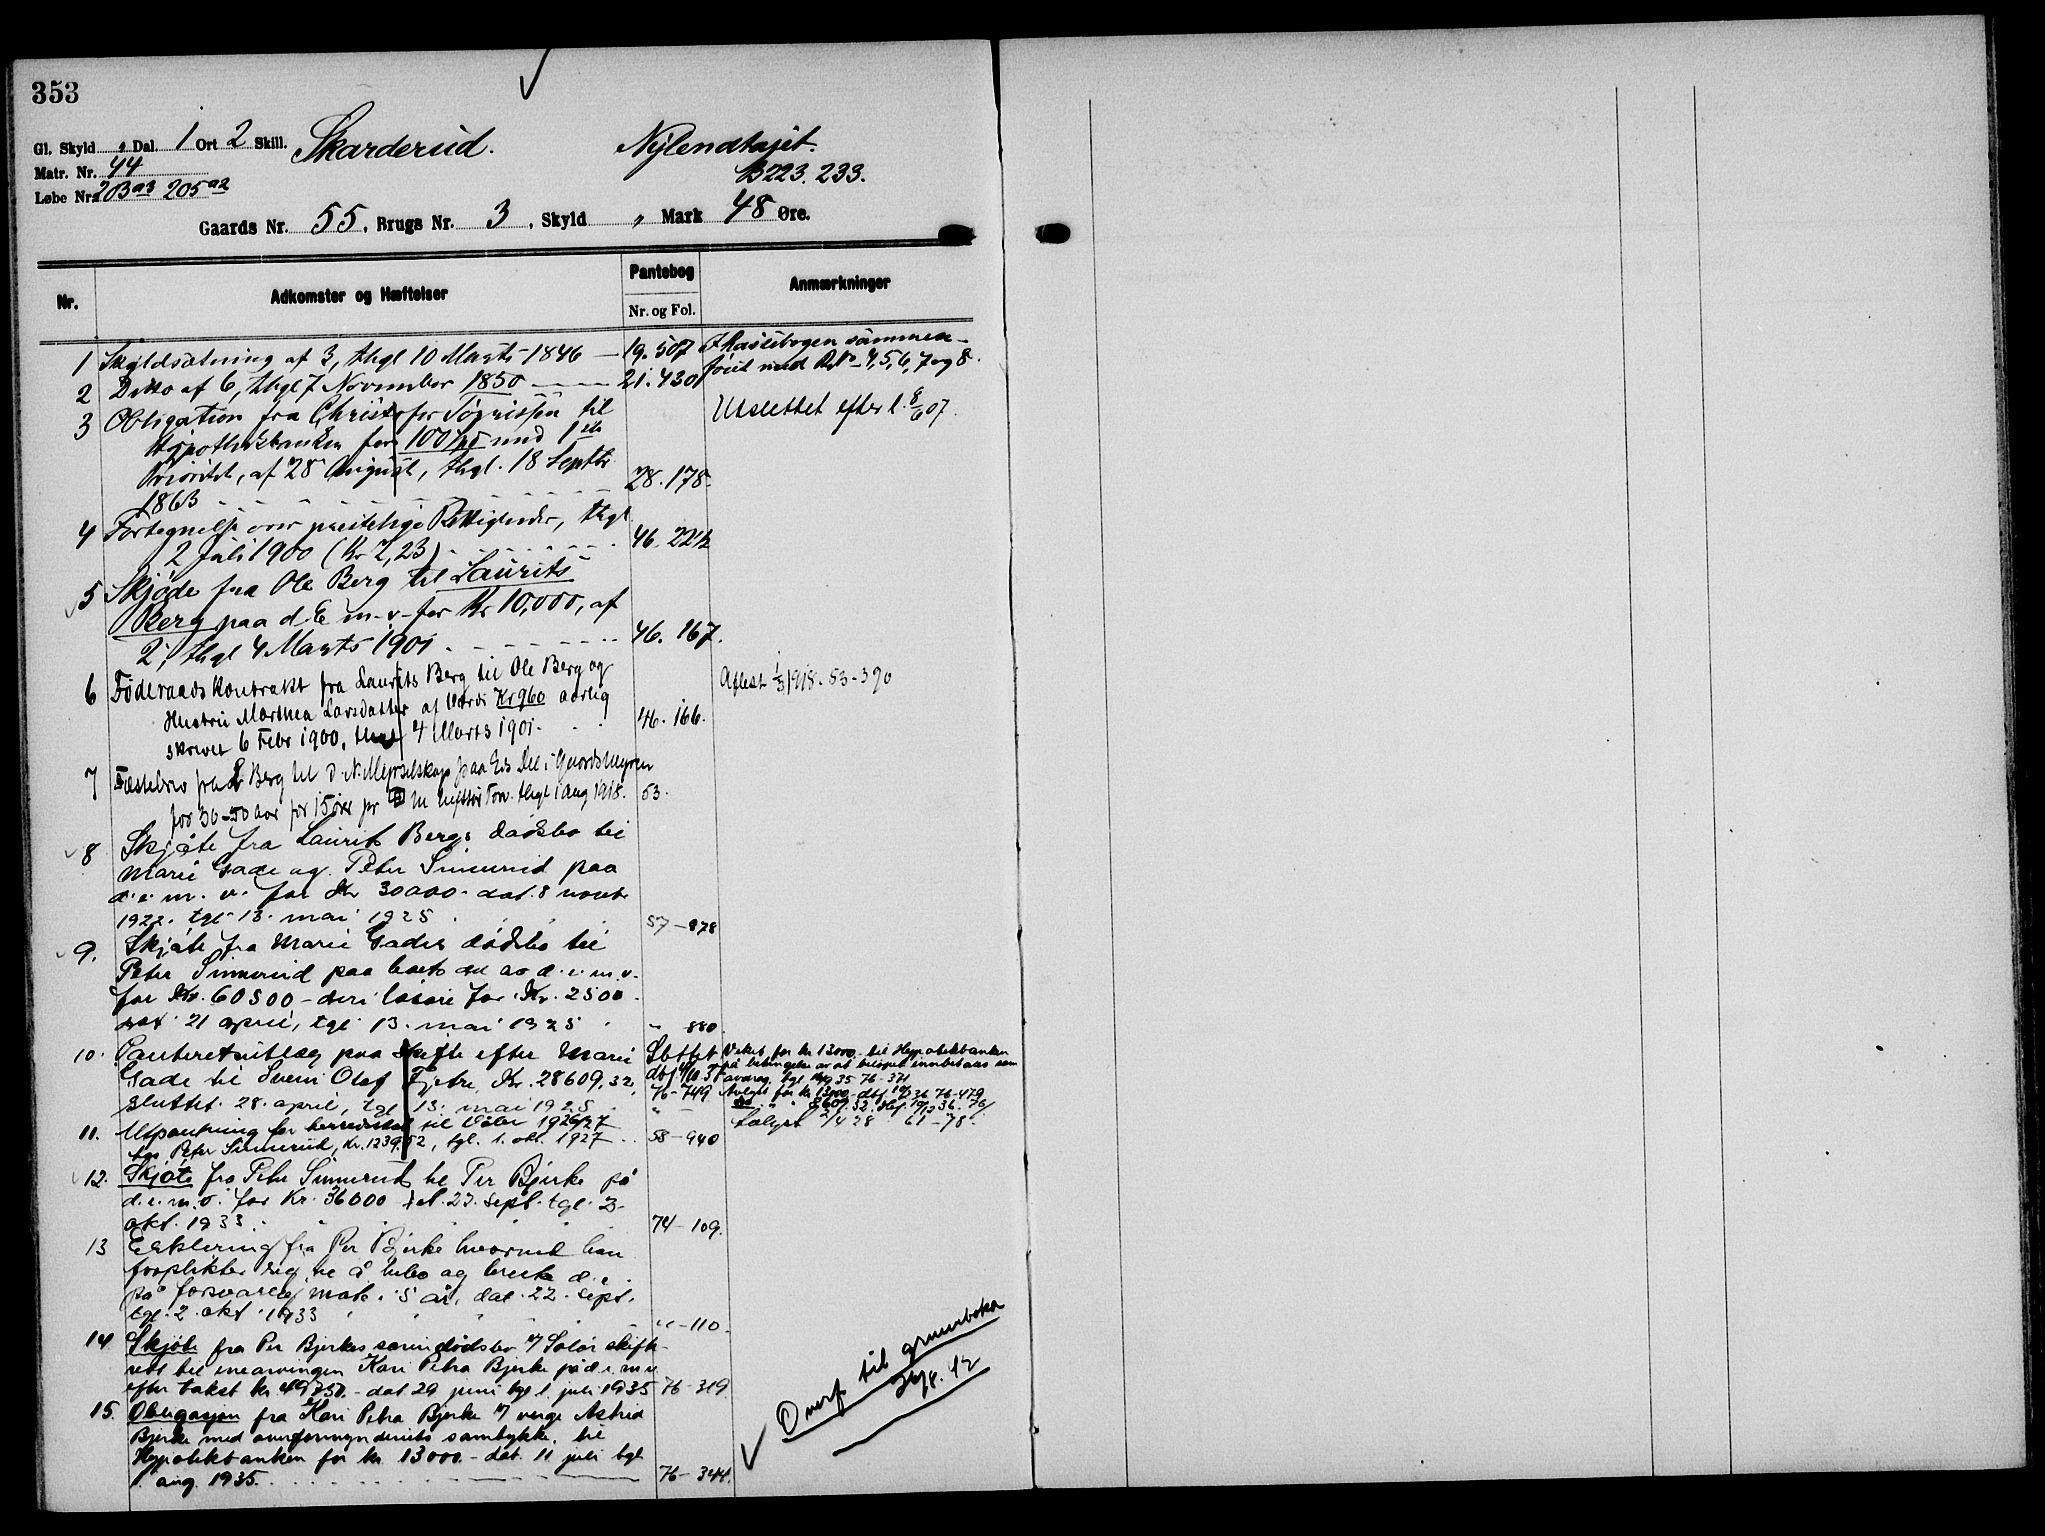 353
Gl. Skyld „ Dal. 1 Ort 2 Skill. Skarderud. Nylendhajet.
Matr. Nr. 44 B223. 233.
Løbe Nr. 203a3 205a2
Gaards Nr. 55, Brugs Nr. 3, Skyld „ Mark 48 Øre.
Nr. Adkomster og Hæftelser Pantebog Anmærkninger
Nr. og Fol.
1 Skyldsætning af 3, thgl 10 Marts 1846 — 19. 507
2 Ditto af 6, thgl 7 November 1850 — 21. 430
sammen-
føiet med 4, 5, 6, 7 og 8.
3 Obligation fra Christofer til
Hypothekbanken for 100 Spd med 1ste
Prioritet, af 28 August, thgl. 18 Septbr
1863 28. 178.
Udslettet efter l. 8/6 07.
4 Fortegnelse over præstelige Rettigheder, thgl
2 Juli 1900 (Kr 2,23) 46.
5 Skjøde fra Ole Berg til Laurits
Berg paa d. E m. v. for Kr 10,000, af
2, thgl 4 Marts 1901 46. 167.
6 Føderaadskontrakt fra Laurits Berg til Ole Berg og
Hustru Marthea Larsdatter af Værdi Kr 960 aarlig
skrevet 6 Febr 1900, thgl 4 Marts 1901. 46. 166.
Aflest 1/3 1918. 53-390
7 Fæstebrev fra L Berg til D. N. Myrselskap paa
for 30-50 aar for 15 øre pr thgl 1 Aug 1918. 53.
8 Skjøte fra Laurits Bergs dødsbo til
Marie Gade og Peter Simerud paa
d. e. m. v. for Kr 30000. dat. 8 novbr
1922. tgl. 13. mai 1925 57-878
9. Skjøte fra Marie Gades dødsbo til
Peter Simerud paa boets del av d. e. m. v.
for Kr. 60500 - deri løsøre for Kr. 2500.
dat. 21 april, tgl. 13. mai 1925 „ 880.
10. Panteretsutlæg paa skifte efter Marie
Gade til Svein Olaf Fjetre, Kr. 28609,32,
sluttet 28. april, tgl 13. mai 1925 „ —
Slettet
76-749
Veket for kr 13000.- til Hypotekbanken
på betingelse av at beløpet innbetales som
avdrag, tgl. 35 76-371
Avlyst for kr 13000.- dbf. 36 76-479
11. Utpantning for til Våler 1926/27
hos Peter Simerud, Kr. 1239,52, tgl. 1. okt. 1927 58-940
Avlyst 2/4 28 61-78.
12. Skjøte fra Peter Simerud til Per Bjerke på
d. e. m. v. for Kr. 36000 dat. 23. sept. tgl. 2.
okt. 1933. 74-109.
13 Erklæring fra Per Bjerke hvorved han
forplikter sig til å bebo og bruke d. e.
på forsvarlig måte i 5 år, dat. 22. sept.
tgl. 2. okt. 1933 „ -110.
14 Skjøte fra Per Bjerkes dødsbo v/ Solør skifte-
rett til enearvingen Kari Petra Bjerke på d. e. m. v.
efter takst kr 49750.- dat 29 juni tgl 1. juli 1935 76-319.
15. Obligasjon fra Kari Petra Bjerke v/ verge Astrid
Bjerke med overformynderiets samtykke, til
Hypotekbanken for kr 13000.- dat. 11 juli tgl
1. aug. 1935. 76-344.
Overf. til grunnboka
42